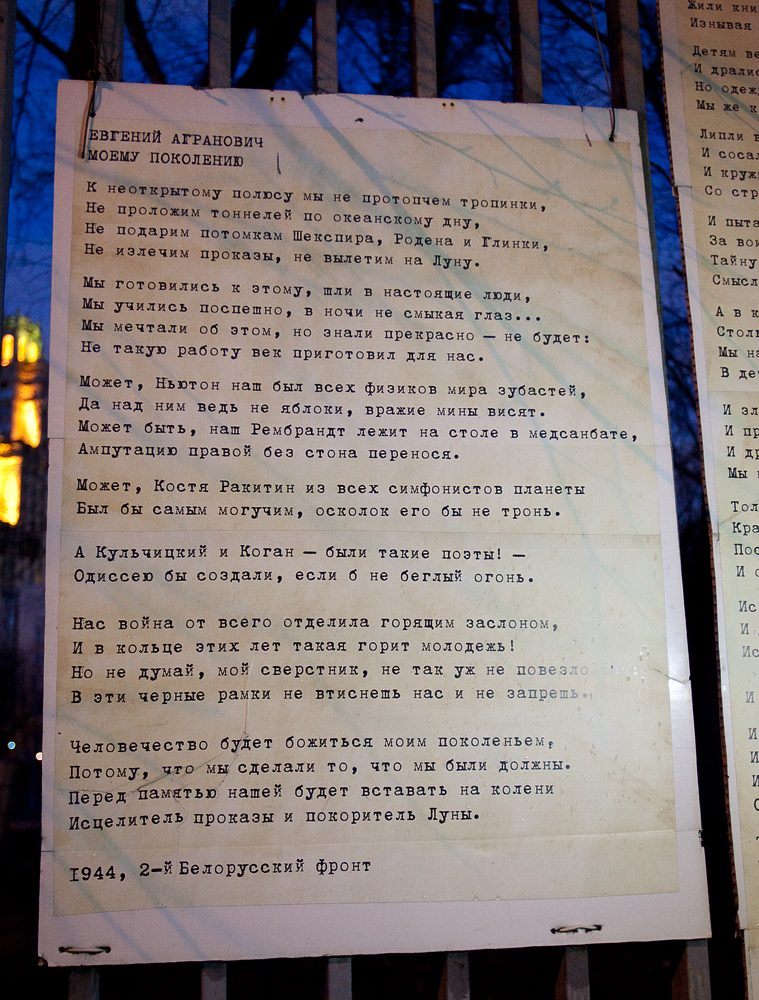 ЕВГЕНИЙ АГРАНОВИЧ
МОЕМУ ПОКОЛЕНИЮ
К неоткрытому полюсу мы не протопчем тропинки,
Не проложим тоннелей по океанскому дну,
Не подарим потомкам Шекспира, Родена и Глинки,
Не излечим проказы, не вылетим на Луну.
Мы готовились к этому, шли в настоящие люди,
Мы учились поспешно, в ночи не смыкая глаз...
Мы мечтали об этом, но знали прекрасно — не будет:
Не такую работу век приготовил для нас.
Может, Ньютон наш был всех физиков мира зубастей,
Да над ним ведь не яблоки, вражие мины висят.
Может быть, наш Рембрандт лежит на столе в медсанбате,
Ампутацию правой без стона перенося.
Может, Костя Ракитин из всех симфонистов планеты
Был бы самым могучим, осколок его бы не тронь.
А Кульчицкий и Коган — были такие поэты! —
Одиссею бы создали, если б не беглый огонь.
Нас война от всего отделила горящим заслоном,
И в кольце этих лет такая горит молодежь!
Но не думай, мой сверстник, не так уж не повезло
В эти черные рамки не втиснешь нас и не запрешь.
Человечество будет божиться моим поколеньем,
Потому, что мы сделали то, что мы были должны.
Перед памятью нашей будет вставать на колени
Исцелитель проказы и покоритель Луны.
1944, 2-й Белорусский фронт
Жили
Изнывая
Детям
И
Но
Мы же
Липли
И
И
Со
И
За
Тайну
А в
Мы
В
И
И
И
Мы
И
И
И
И
И